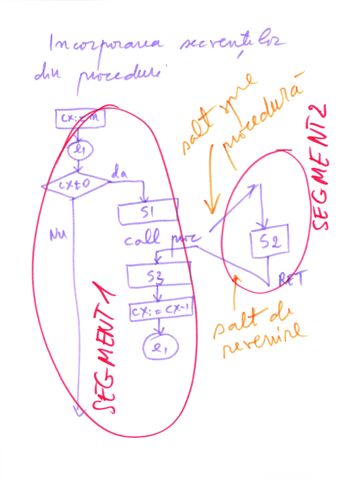 Incorporarea secvențelor
din proceduri
cx:=n
e1
cx≠0
da
Nu
S1
call proc
S2
cx:=cx-1
e1
SEGMENT1
salt spre
procedură
SEGMENT2
S2
RET
salt de
revenire